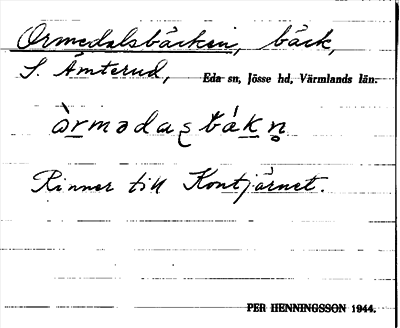 Ormedalsbäcken, bäck,
S. Ämterud, Eda sn, Jösse hd, Värmlands län.
Rinner till Kontjärnet.
PER HENNINGSSON 1944.